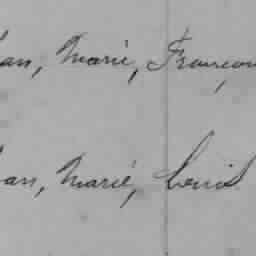 an, Marie, François
an, Marie, Louis